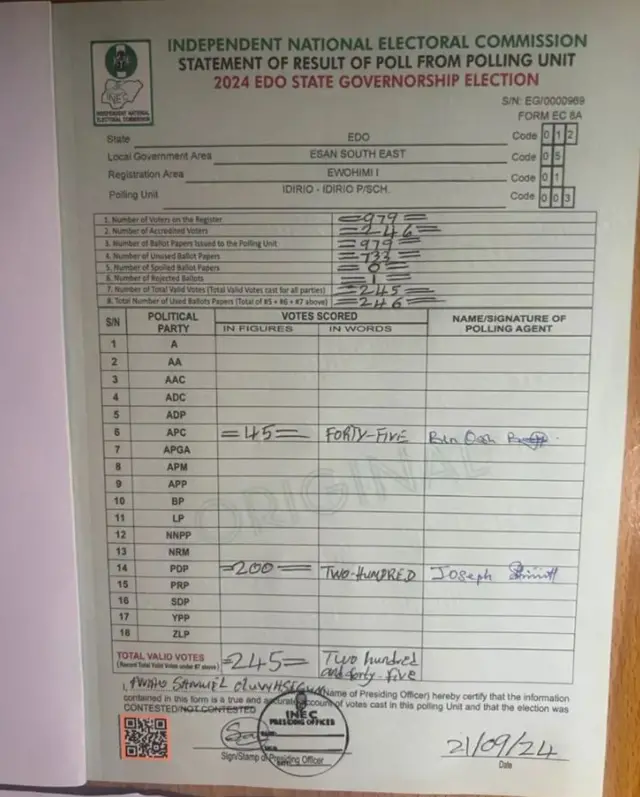 INEC
INDEPENDENT NATIONAL
ELECTORAL COMMISSION
INDEPENDENT NATIONAL ELECTORAL COMMISSION
STATEMENT OF RESULT OF POLL FROM POLLING UNIT
2024 EDO STATE GOVERNORSHIP ELECTION
S/N: EG/0000969
FORM EC 8A
State EDO Code 0 1 2
Local Government Area ESAN SOUTH EAST Code 0 5
Registration Area EWOHIMI I Code 0 1
Polling Unit IDIRIO - IDIRIO P/SCH. Code 0 0 3
1. Number of Voters on the Register =979=
2. Number of Accredited Voters =246=
3. Number of Ballot Papers Issued to the Polling Unit =979=
4. Number of Unused Ballot Papers =733=
5. Number of Spoiled Ballot Papers =0=
6. Number of Rejected Ballots =1=
7. Number of Total Valid Votes (Total Valid Votes cast for all parties) =245=
8. Total Number of Used Ballots Papers (Total of #5 + #6 + #7 above) =246=
S/N POLITICAL PARTY VOTES SCORED NAME/SIGNATURE OF POLLING AGENT
IN FIGURES IN WORDS
1 A
2 AA
3 AAC
4 ADC
5 ADP
6 APC =45= FORTY-FIVE
7 APGA
8 APM
9 APP
10 BP
11 LP
12 NNPP
13 NRM
14 PDP =200= TWO-HUNDRED Joseph
15 PRP
16 SDP
17 YPP
18 ZLP
ORIGINAL
TOTAL VALID VOTES =245= Two hundred
(Record Total Valid Votes under #7 above) and forty-five
I, SAMUEL (Name of Presiding Officer) hereby certify that the information
contained in this form is a true and accurate account of votes cast in this polling Unit and that the election was
CONTESTED/NOT CONTESTED
INEC
PRESIDING OFFICER
Sign/Stamp of Presiding Officer
21/09/24
Date